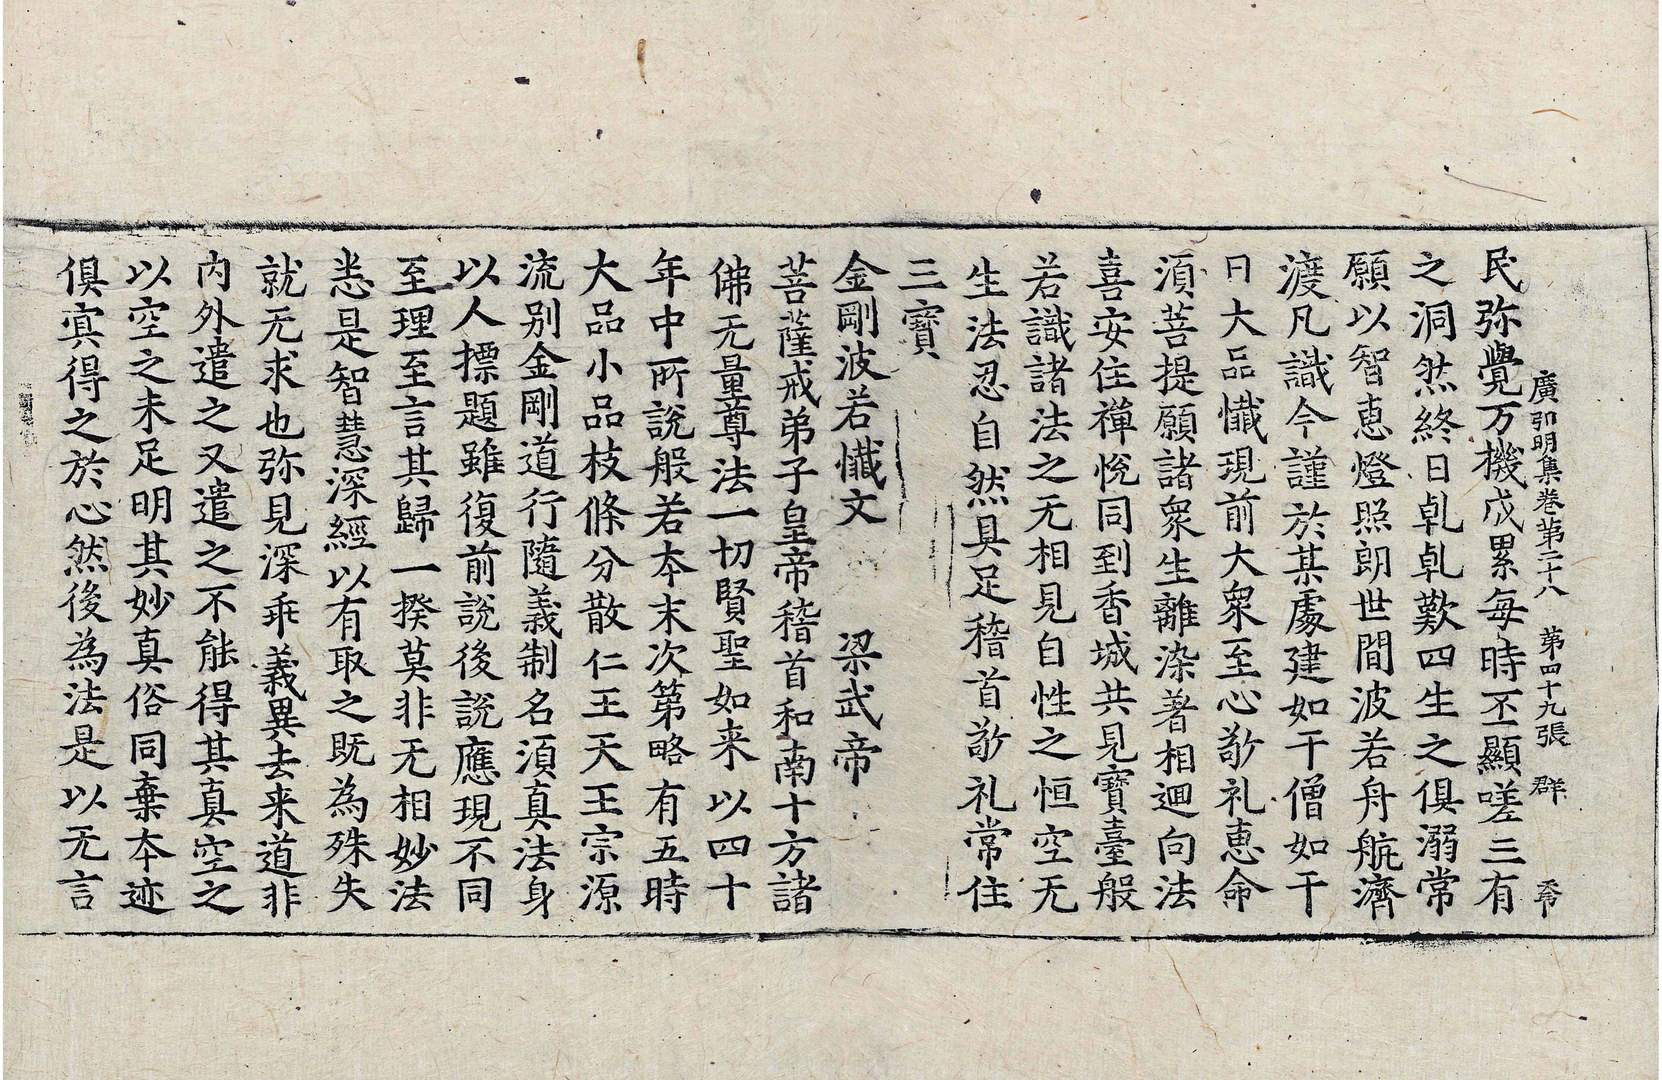 廣弘明集卷第二十八 第四十九張 群
民弥覺万機戊累每時丕顯嗟三有
之洞然終日乹乹歎四生之俱溺常
願以智恵燈照朗世間波若舟航濟
渡凡識今謹於某處建如干僧如干
日大品懺現前大衆至心敬礼恵命
湏菩提願諸衆生離染著相迴向法
喜安住禅悅同到香城共見寶臺般
若識諸法之无相見自性之恒空无
生法忍自然具足稽首敬礼常住
三寶
金剛波若懺文 梁武帝
菩薩戒弟子皇帝稽首和南十方諸
佛无量尊法一切賢聖如来以四十
年中所說般若本末次第略有五時
大品小品枝條分散仁王天王宗源
流别金剛道行隨義制名湏真法身
以人摽題雖復前說後說應現不同
至理至言其歸一揆莫非无相妙法
悉是智慧深經以有取之旣為殊失
就无求也弥見深乖義異去来道非
内外遣之又遣之不能得其真空之
以空之未足明其妙真俗同棄本迹
俱寘得之於心然後為法是以无言